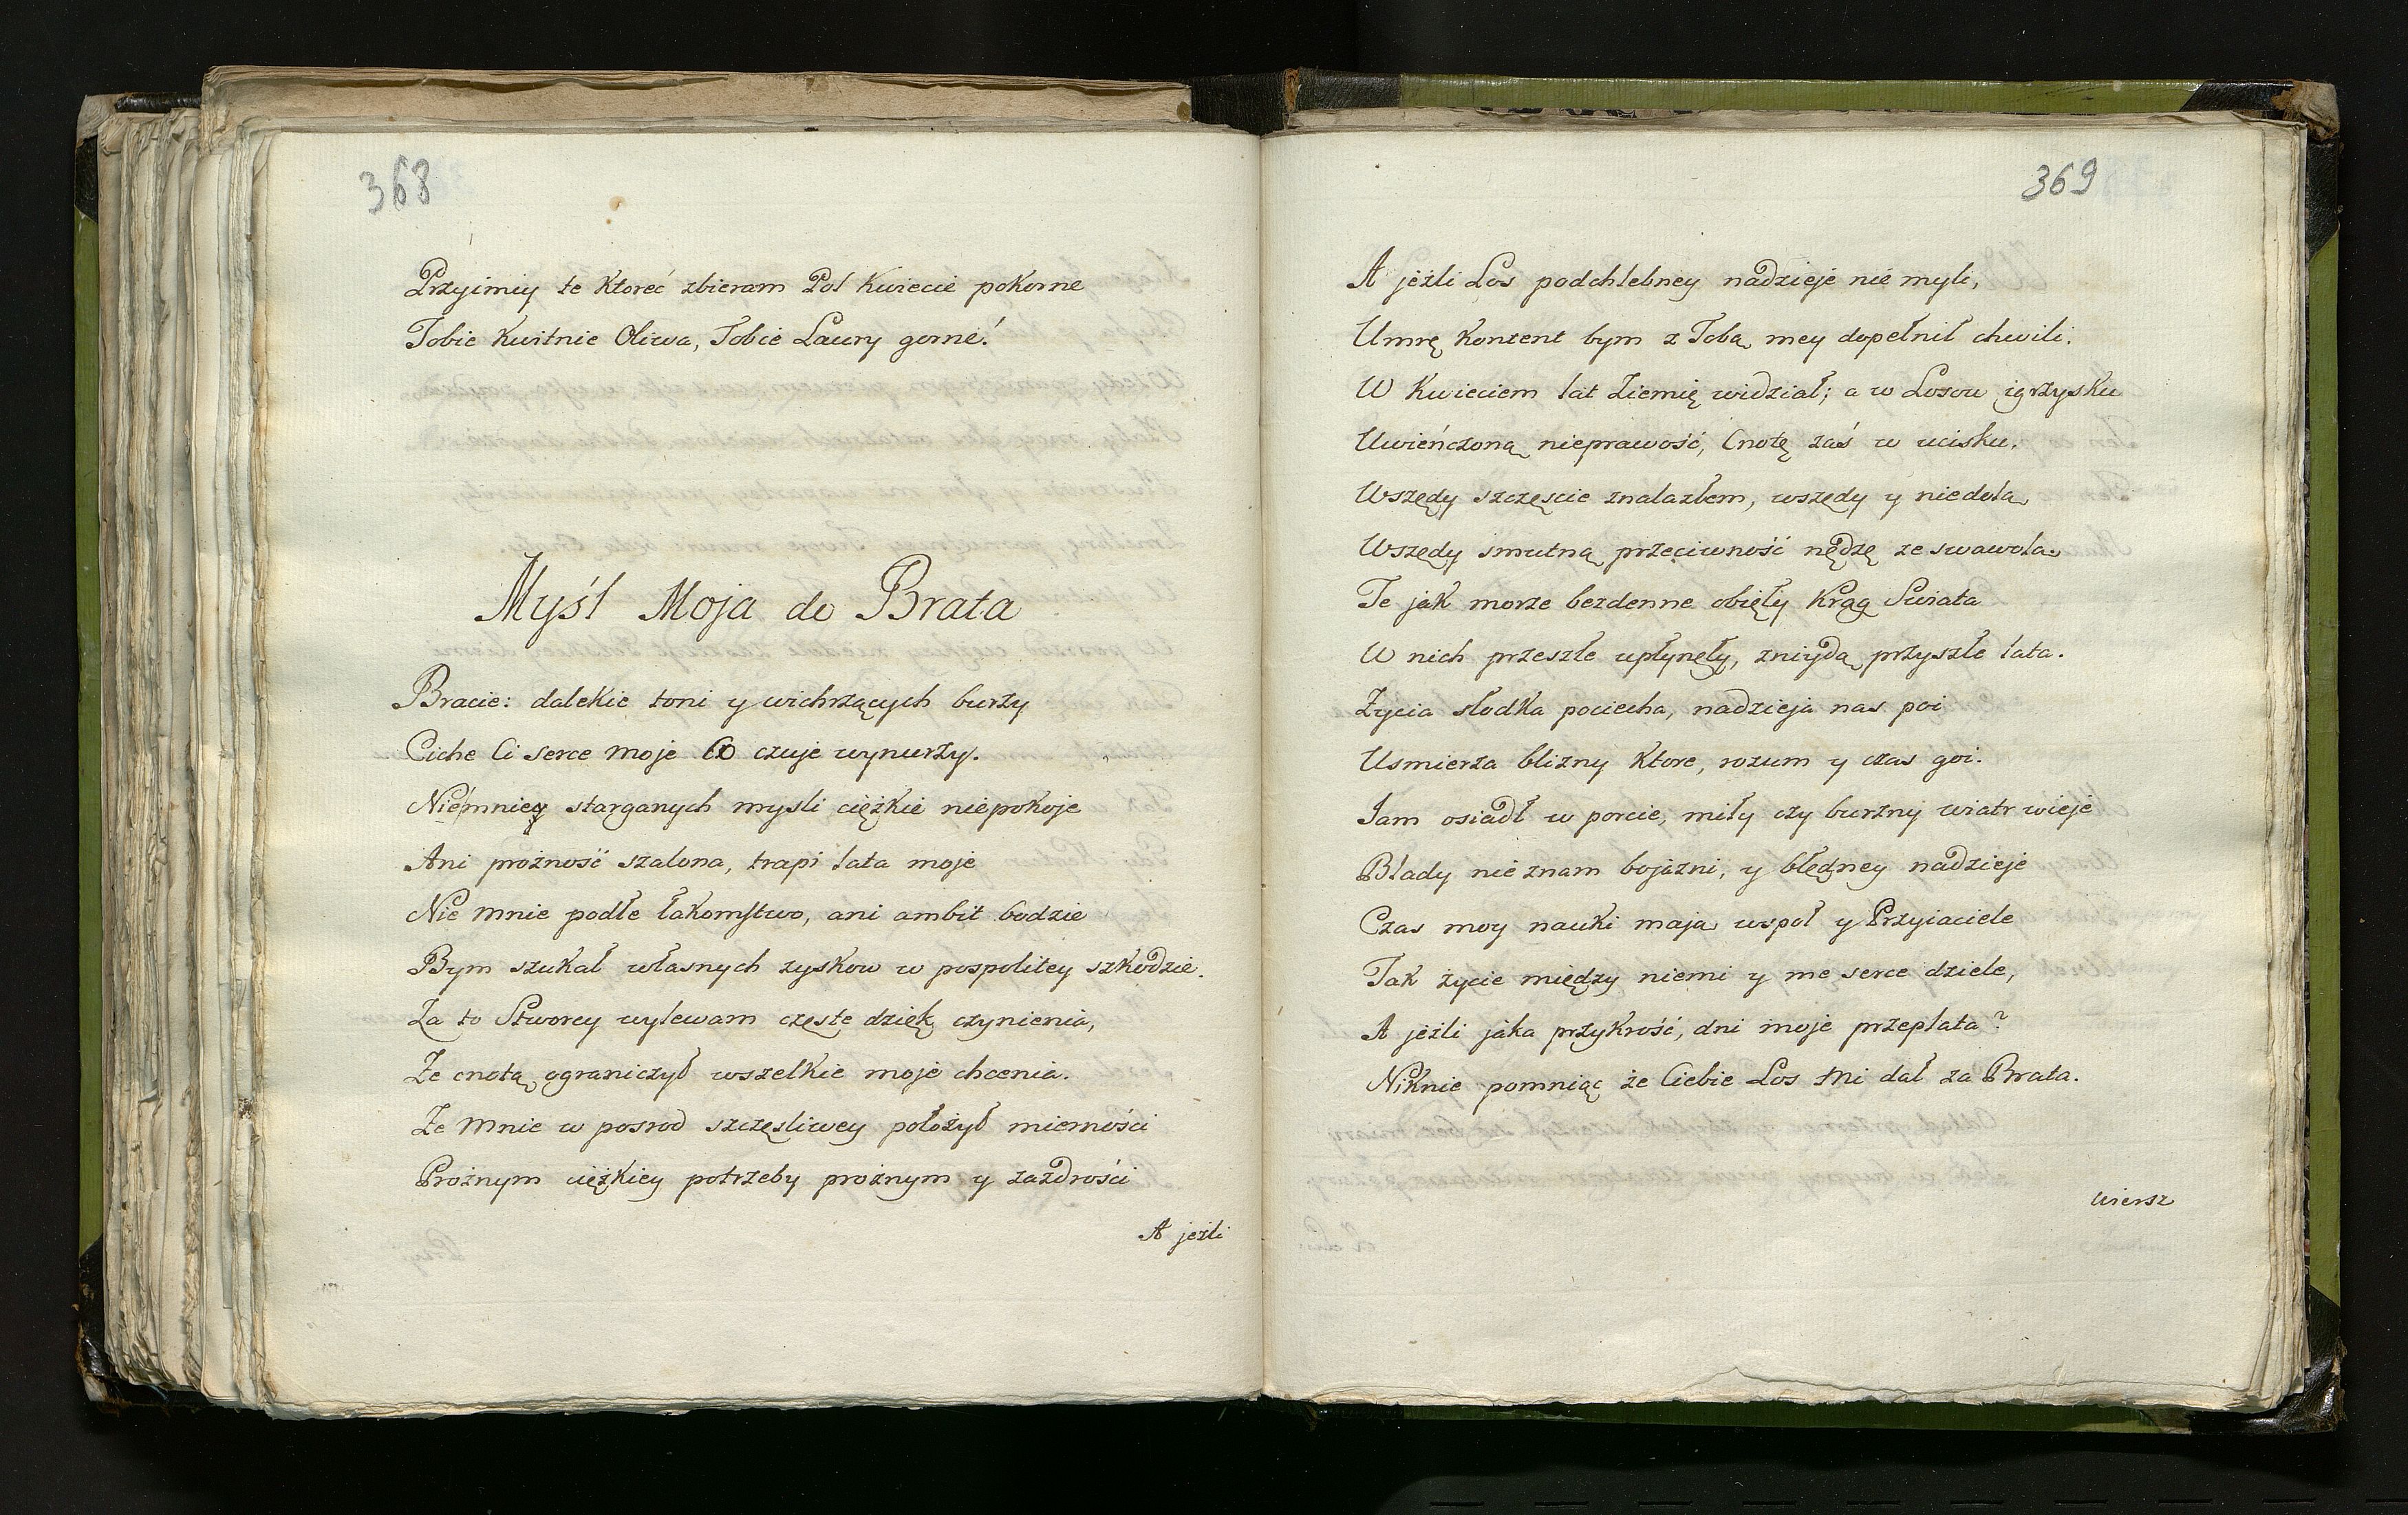 368
Przyimiy te ktoreć zbieram Pol kwiecie pokorne
Tobie kwitnie Oliwa, Tobie Laury gorne!
Myśl Moja do Brata
Bracie: dalekie toni y wichrzących burzy
Ciche Ci serce moje Co czuje wynurzy.
Niemniey starganych mysli ciężkie niepokoje
Ani prożność szalona, trapi lata moje
Nie mnie podłe łakomstwo, ani ambit bodzie
Bym szukał własnych zyskow w pospolitey szkodzie.
Za to Stworcy wylewam częste dzięk czynienia,
Że cnotą ograniczył wszelkie moje chcenia.
Że mnie w posrod szczęsliwey położył mierności
Prożnym ciężkiey potrzeby prożnym y zazdrości
A jeżli
369
A jeżli Los podchlebney nadzieje nie myli,
Umrę kontent bym z Tobą mey dopełnił chwili.
W kwieciem lat Ziemię widział; a w Losow igrzysku
Uwieńczoną nieprawość, Cnotę zaś w ucisku.
Wszędy szczęscie znalazłem, wszędy y niedolą
Wszędy smutną przeciwność nędzę ze swawolą.
Te jak morze bezdenne obięły krąg Swiata
W nich przeszłe upłynęły, zniydą przyszłe lata.
Życia słodka pociecha, nadzieja nas poi
Usmierza blizny ktore, rozum y czas goi.
Jam osiadł w porcie, miły czy burzny wiatr wieje
Blady nie znam bojazni, y błędney nadzieje
Czas moy nauki mają wspoł y Przyiaciele
Tak życie między niemi y me serce dziele,
A jeżli jaka przykrość, dni moje przeplata?
Niknie pomniąc że Ciebie Los mi dał za Brata.
wiersz